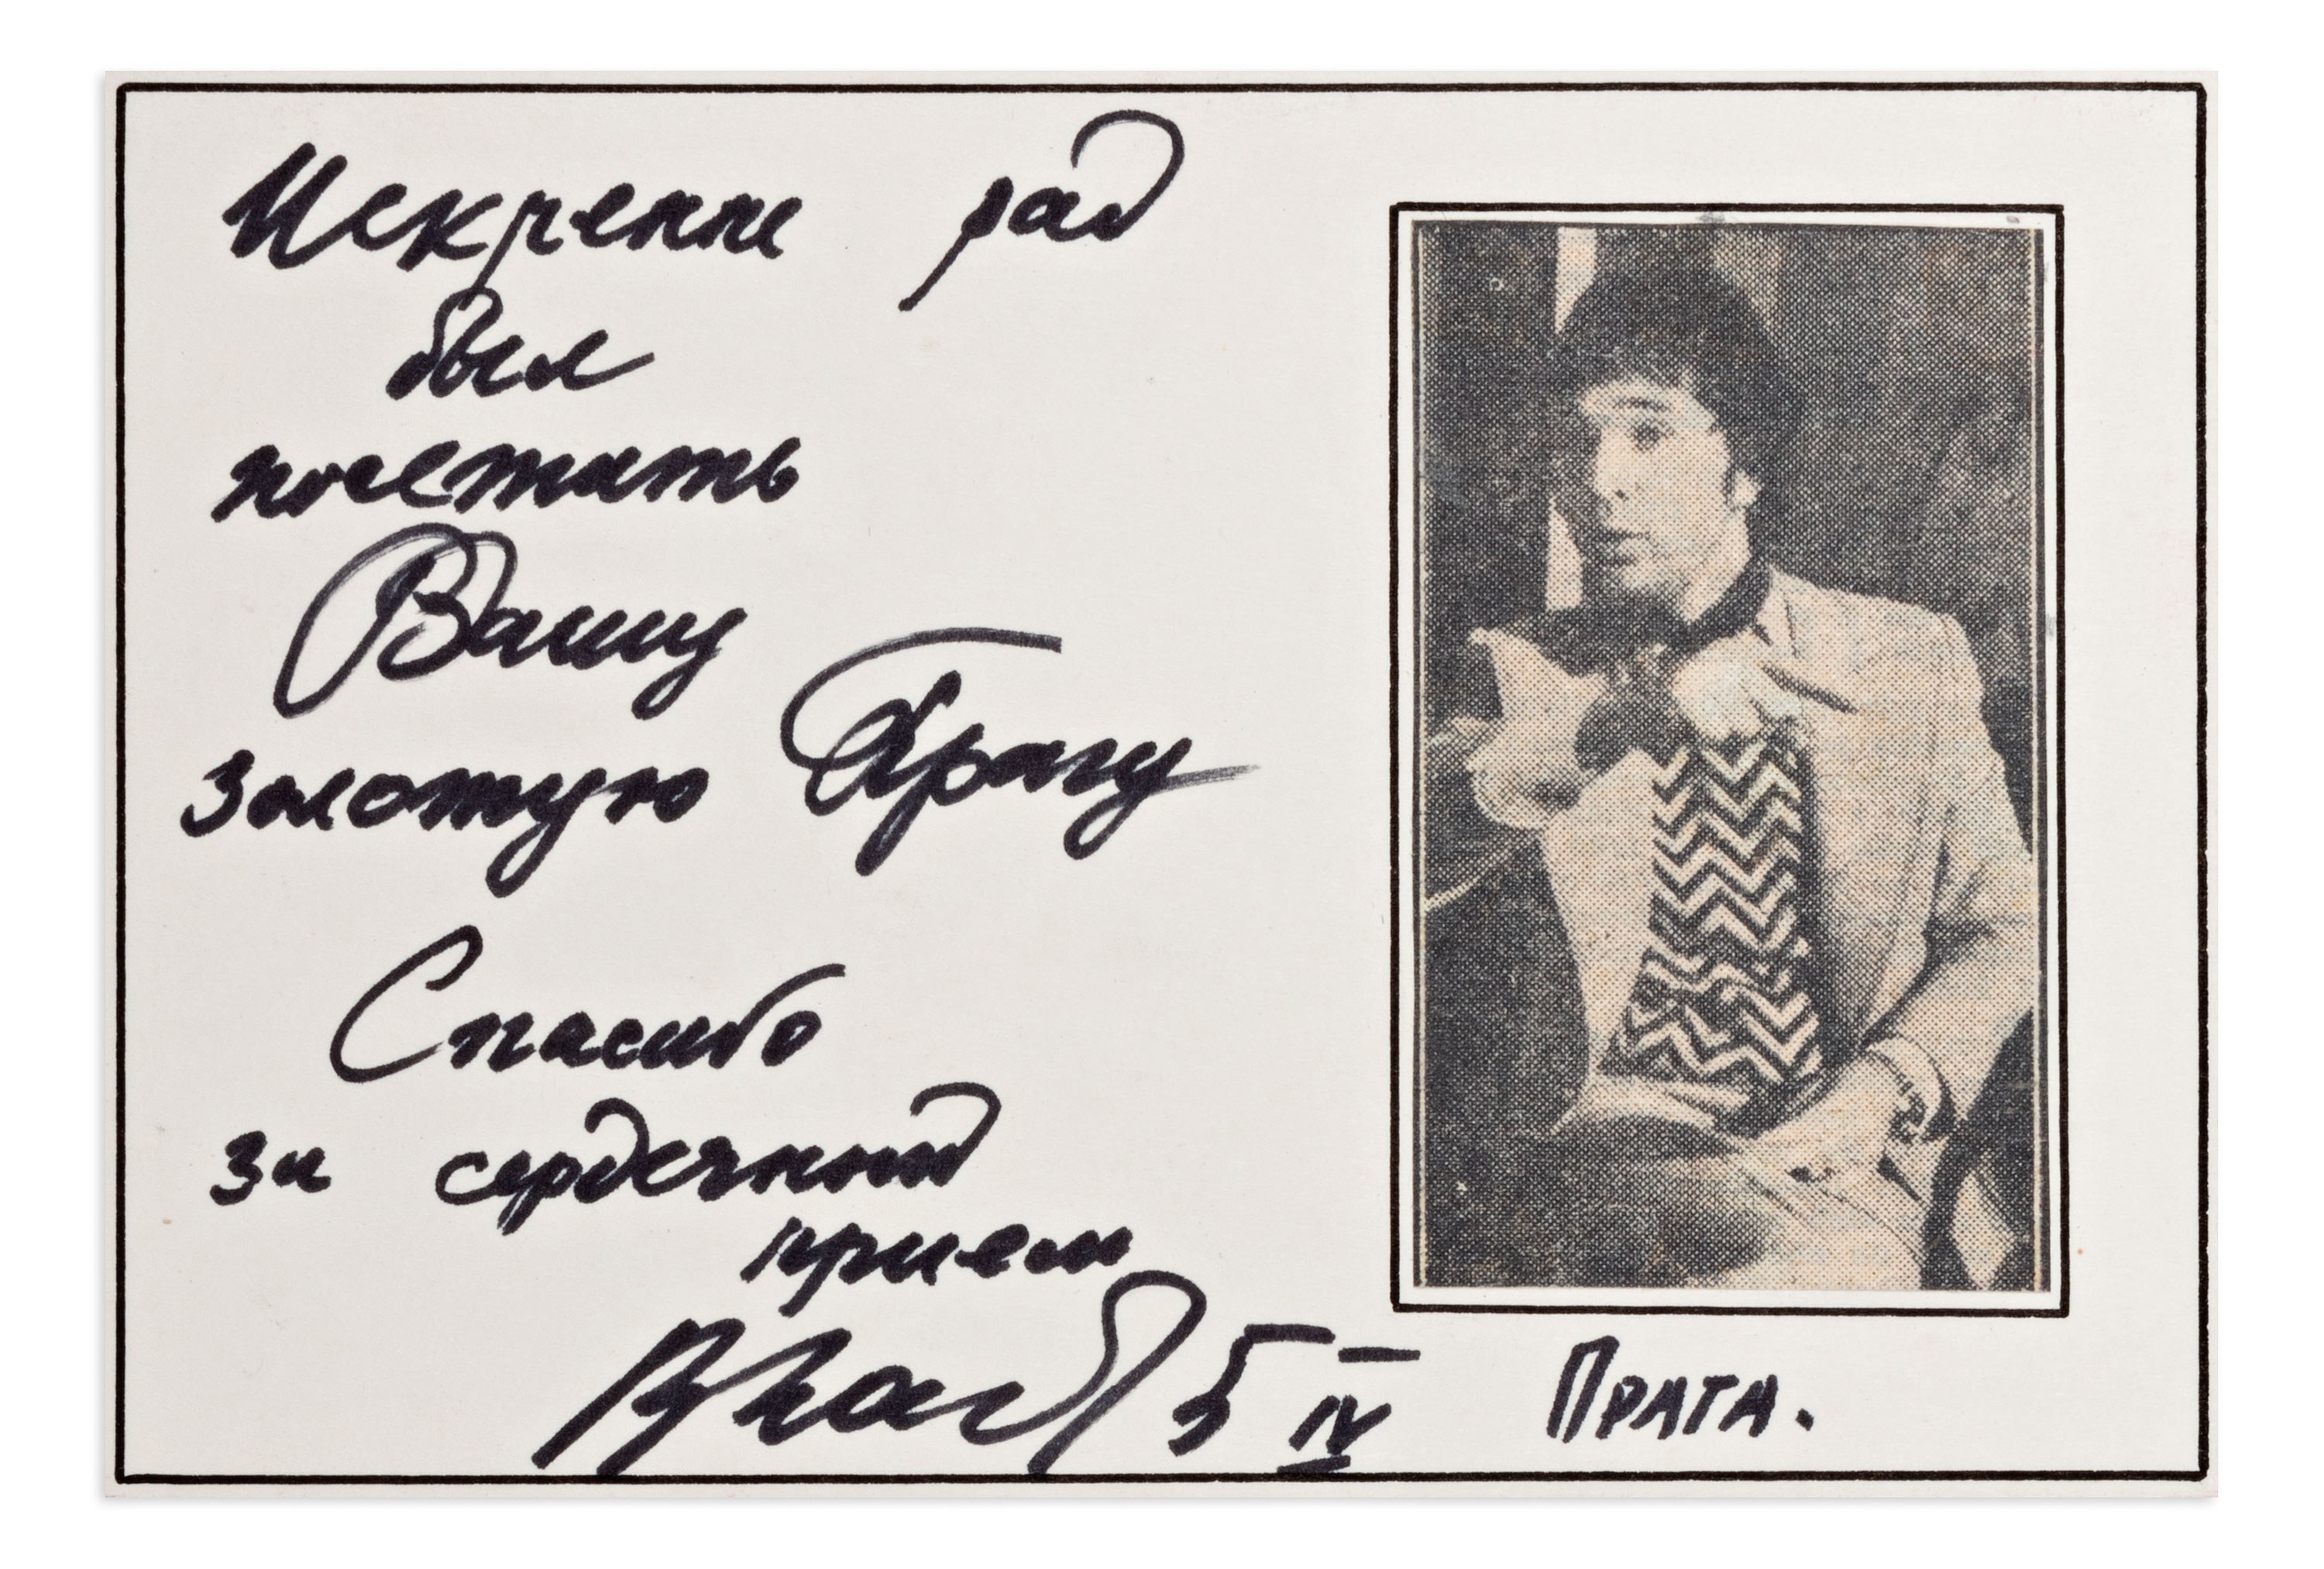 Искренне рад
был
посетить
Вашу
золотую Прагу
Спасибо
за сердечный
прием
5 IV
ПРАГА.